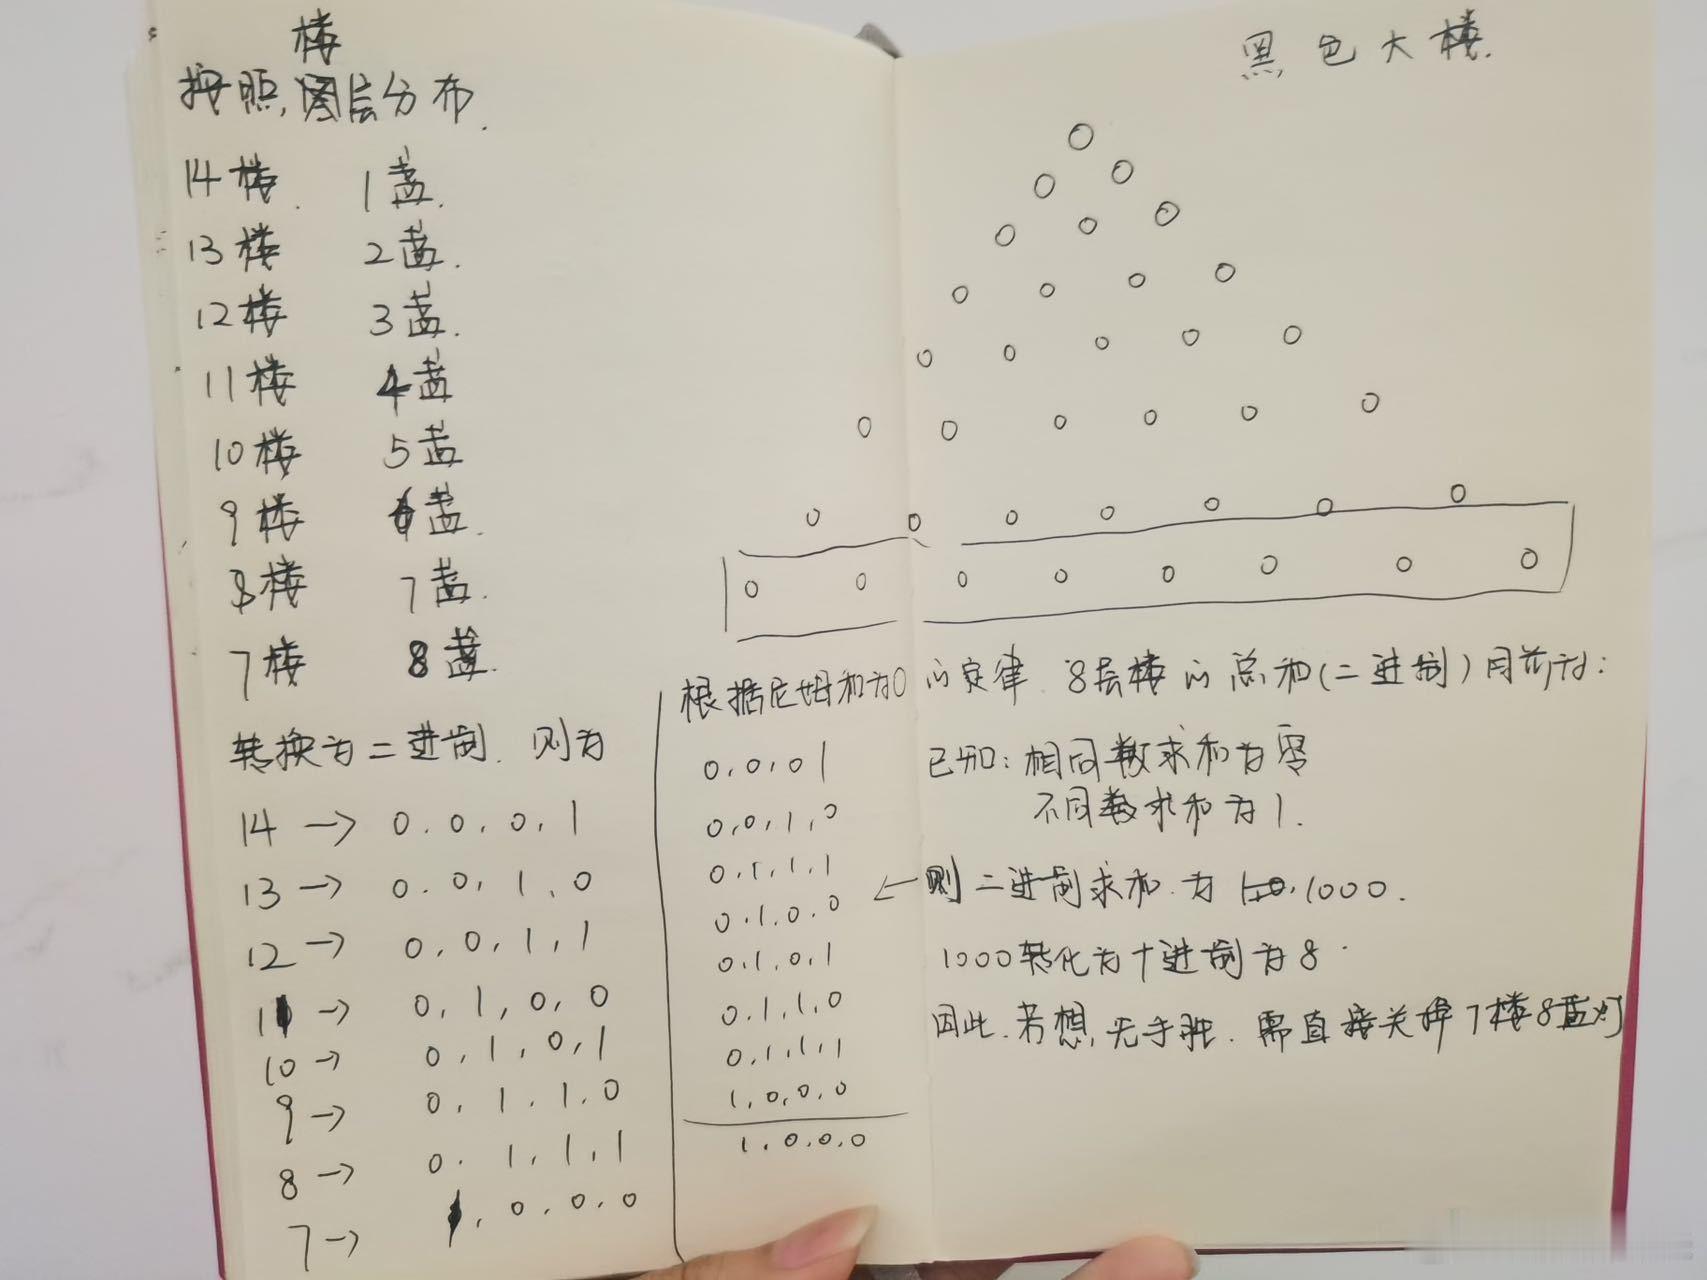 楼
按照,图层分布.
14楼. 1盏.
13楼 2盏.
12楼 3盏.
11楼 4盏
10楼 5盏
9楼 6盏.
8楼 7盏.
7楼 8盏.
转换为二进制.则为
14 → 0.0,0,1
13 → 0.0,1,0
12 → 0,0,1,1
11 → 0,1,0,0
10 → 0,1,0,1
9 → 0,1,1,0
8 → 0.1,1,1
7 → 1,0,0,0
黑色大楼.
根据尼姆和为0的定律.8层楼的总和(二进制)目前为:
0,0,01
0,0,1,0
0,1,1,1
0,1,0,0
0,1,0,1
0,1,1,0
0,1,1,1
1,0,0,0
1,0,0,0
已知:相同数求和为零
不同数求和为1.
← 则二进制求和.为1000.
1000转化为十进制为8.
因此.若想,先手胜.需直接关掉7楼8盏灯